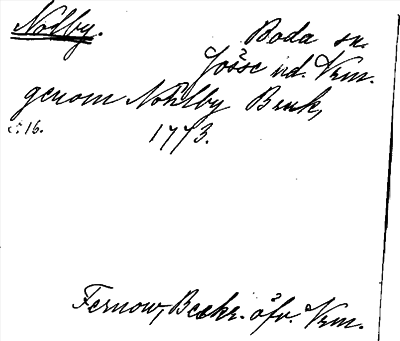 Nolby.
Boda sn.
Jösse hd. Vrm.
genom Nohlby Bruk,
c: 16.
1773.
Fernow, Beskr. öfv. Vrm.